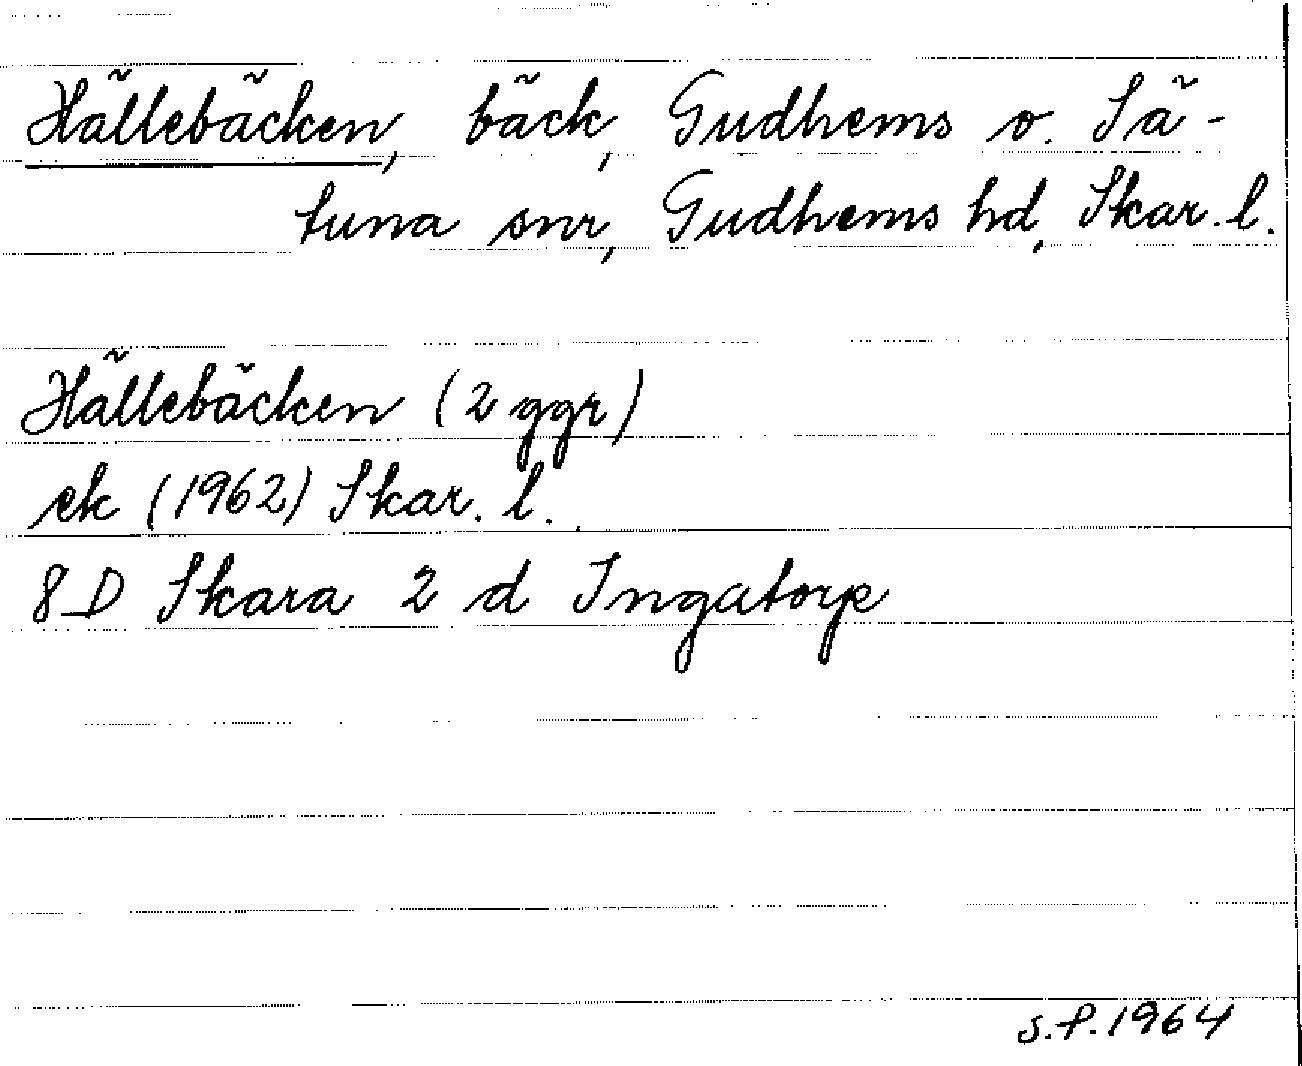 Hällebäcken, bäck, Gudhems o. Sä-
tuna snr, Gudhems hd, Skar. l.
Hällebäcken (2 ggr)
ek (1962) Skar. l.
8D Skara 2 d Ingatorp
S.F. 1964